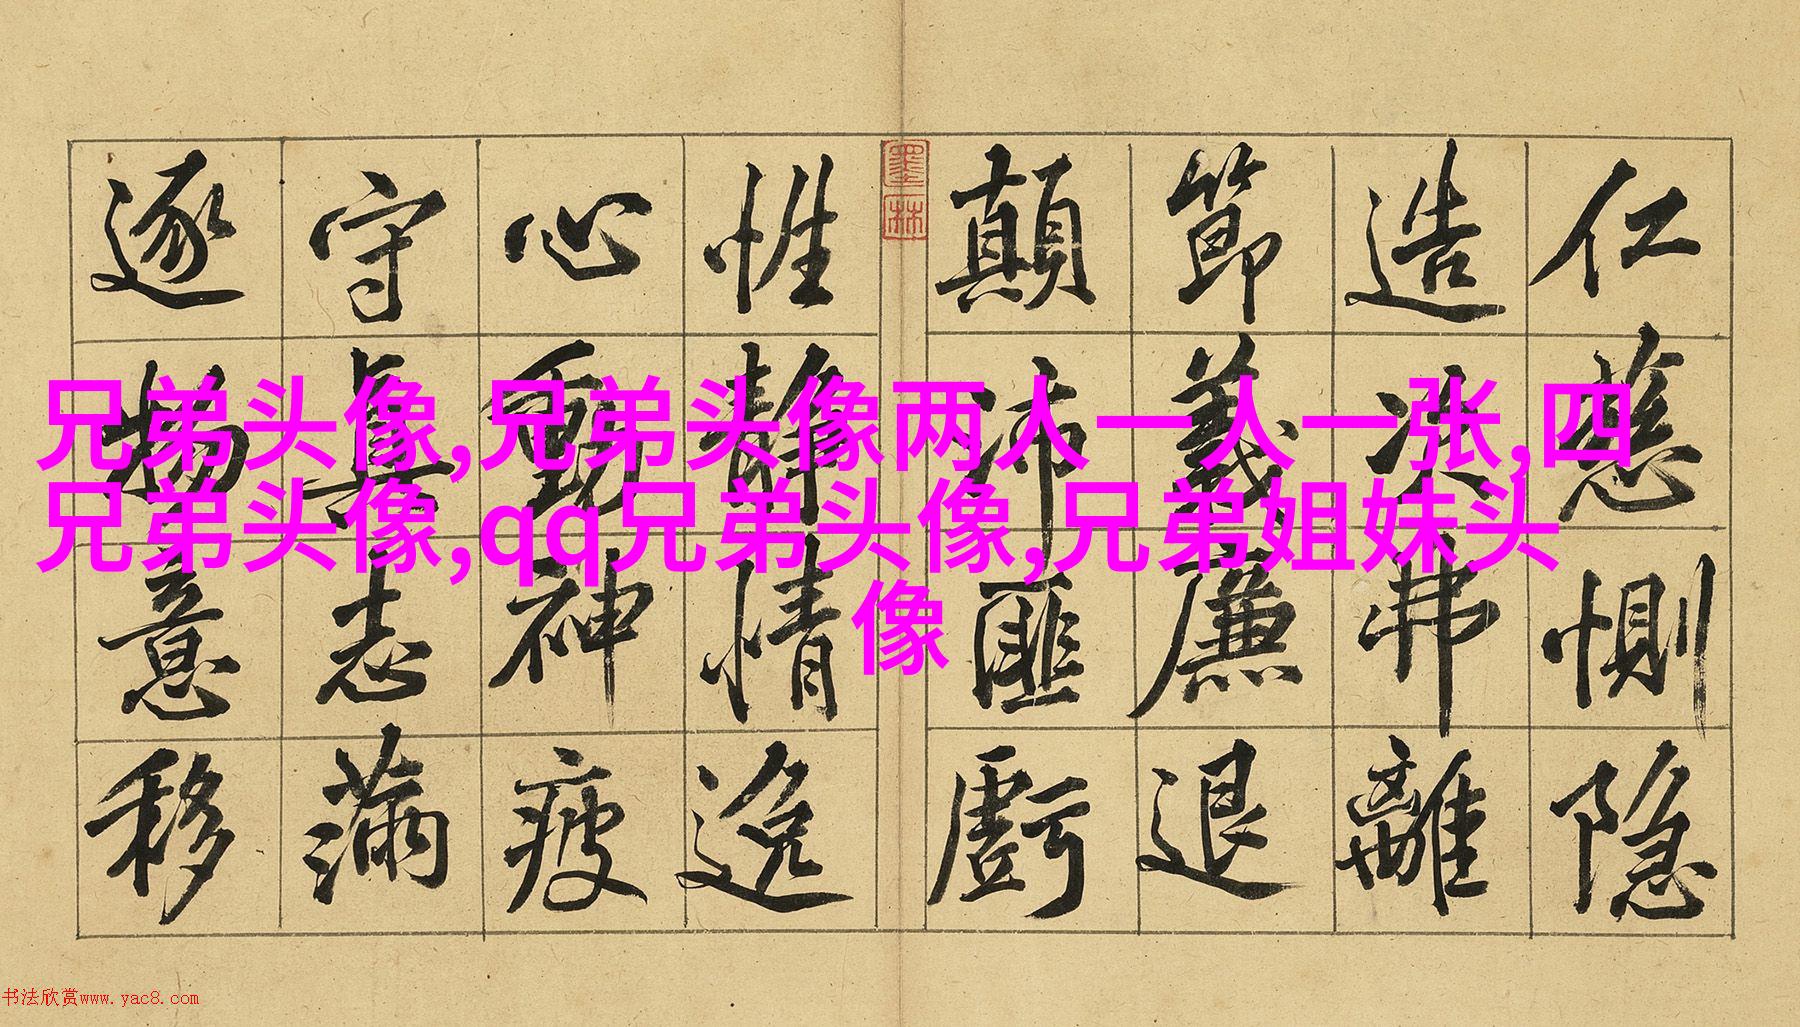 仁慈惻隐
造次弗離
節義廉退
顛沛匪虧
性静情逸
心動神疲
守真志滿
逐物意移
墨林
兄弟头像,兄弟头像两人一人一张,四
兄弟头像,qq兄弟头像,兄弟姐妹头
像
书法欣赏www.yac8.com